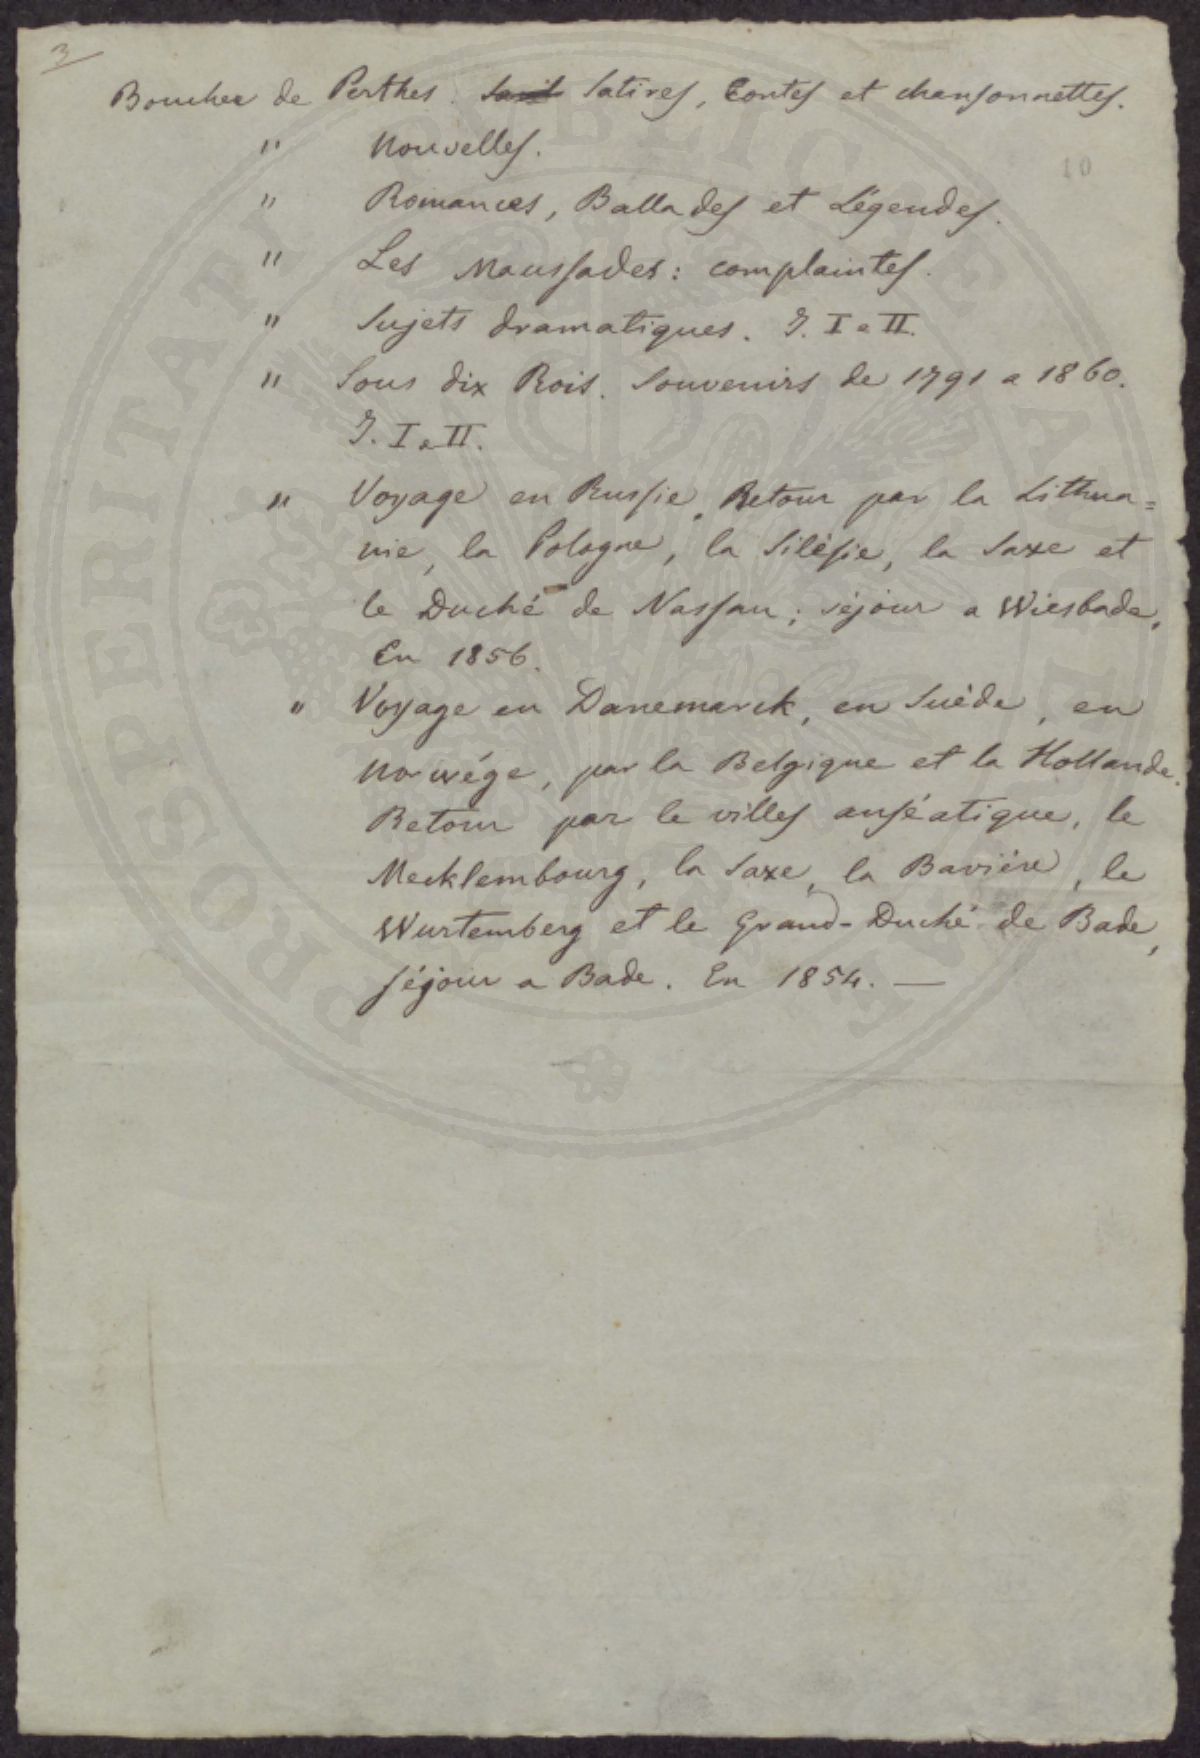 3
Boucher de Perthes. Satires, Contes et chansonnettes.
10
" Nouvelles.
" Romances, Ballades et Légendes.
" Les Maussades: complaintes.
" Sujets dramatiques. T. I e II.
" Sous dix Rois. Souvenirs de 1791 a 1860.
T. I e II.
" Voyage en Russie. Retour par la Lithua=
nie, la Pologne, la Silésie, la Saxe et
le Duché de Nassau; séjour a Wiesbade.
En 1856.
" Voyage en Danemarck, en Suède, en
Norwége, par la Belgique et la Hollande.
Retour par le villes anséatique, le
Mecklembourg, la Saxe, la Bavière, le
Wurtemberg et le Grand-Duché de Bade,
séjour a Bade. En 1854. —
PROSPERITATI PUBLICAE AUGENDAE